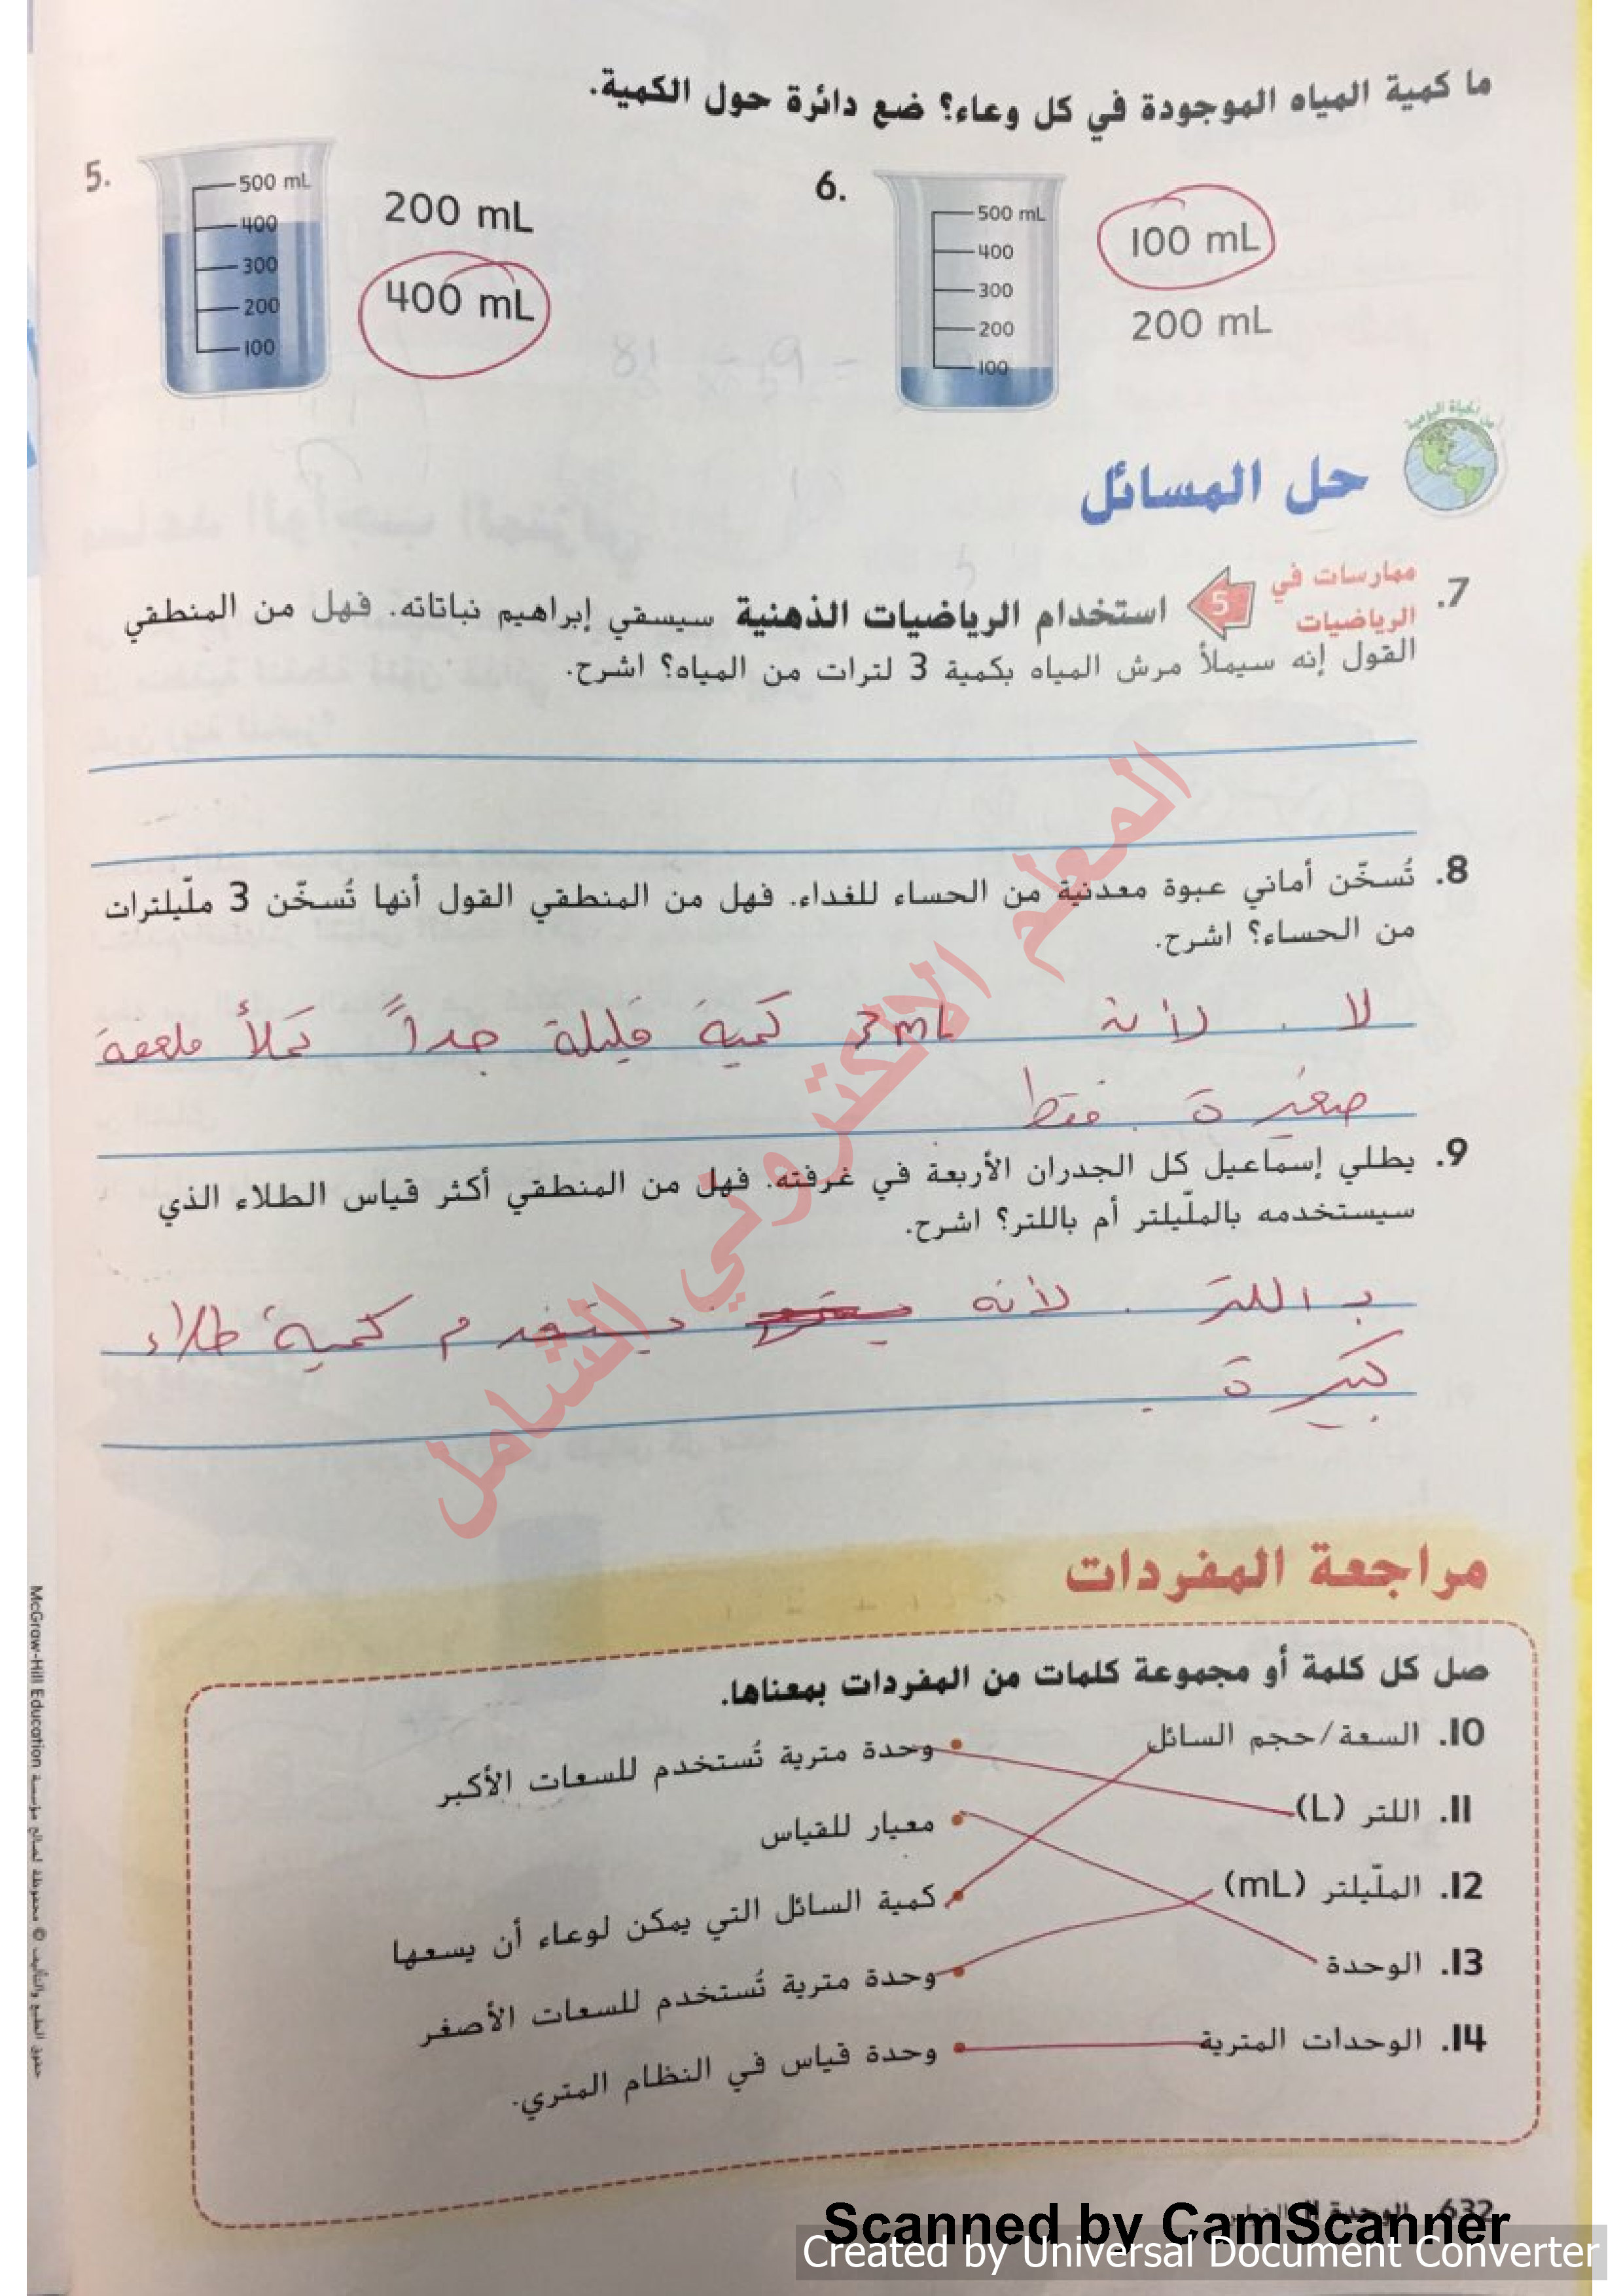 ما كمية المياه الموجودة في كل وعاء؟ ضع دائرة حول الكمية.
5.
500 mL
400
300
200
100
200 mL
400 mL
6.
500 mL
400
300
200
100
100 mL
200 mL
من الحياة اليومية
حل المسائل
7. ممارسات في الرياضيات 5 استخدام الرياضيات الذهنية سيسقي إبراهيم نباتاته. فهل من المنطقي
القول إنه سيملأ مرش المياه بكمية 3 لترات من المياه؟ اشرح.
8. تُسخّن أماني عبوة معدنية من الحساء للغداء. فهل من المنطقي القول أنها تُسخّن 3 ملّيلترات
من الحساء؟ اشرح.
لا . لأنه 3mL كمية قليلة جداً تملأ ملعقة
صغيرة فقط
9. يطلي إسماعيل كل الجدران الأربعة في غرفته. فهل من المنطقي أكثر قياس الطلاء الذي
سيستخدمه بالملّيلتر أم باللتر؟ اشرح.
باللتر . لأنه يستخدم كمية طلاء
كبيرة .
مراجعة المفردات
صل كل كلمة أو مجموعة كلمات من المفردات بمعناها.
10. السعة/حجم السائل
وحدة مترية تُستخدم للسعات الأكبر
11. اللتر (L)
معيار للقياس
12. الملّيلتر (mL)
كمية السائل التي يمكن لوعاء أن يسعها
13. الوحدة
وحدة مترية تُستخدم للسعات الأصغر
14. الوحدات المترية
وحدة قياس في النظام المتري.
632 الوحدة 11
المعلم الالكتروني الشامل
حقوق الطبع والتأليف © محفوظة لصالح مؤسسة McGraw-Hill Education
Scanned by CamScanner
Created by Universal Document Converter